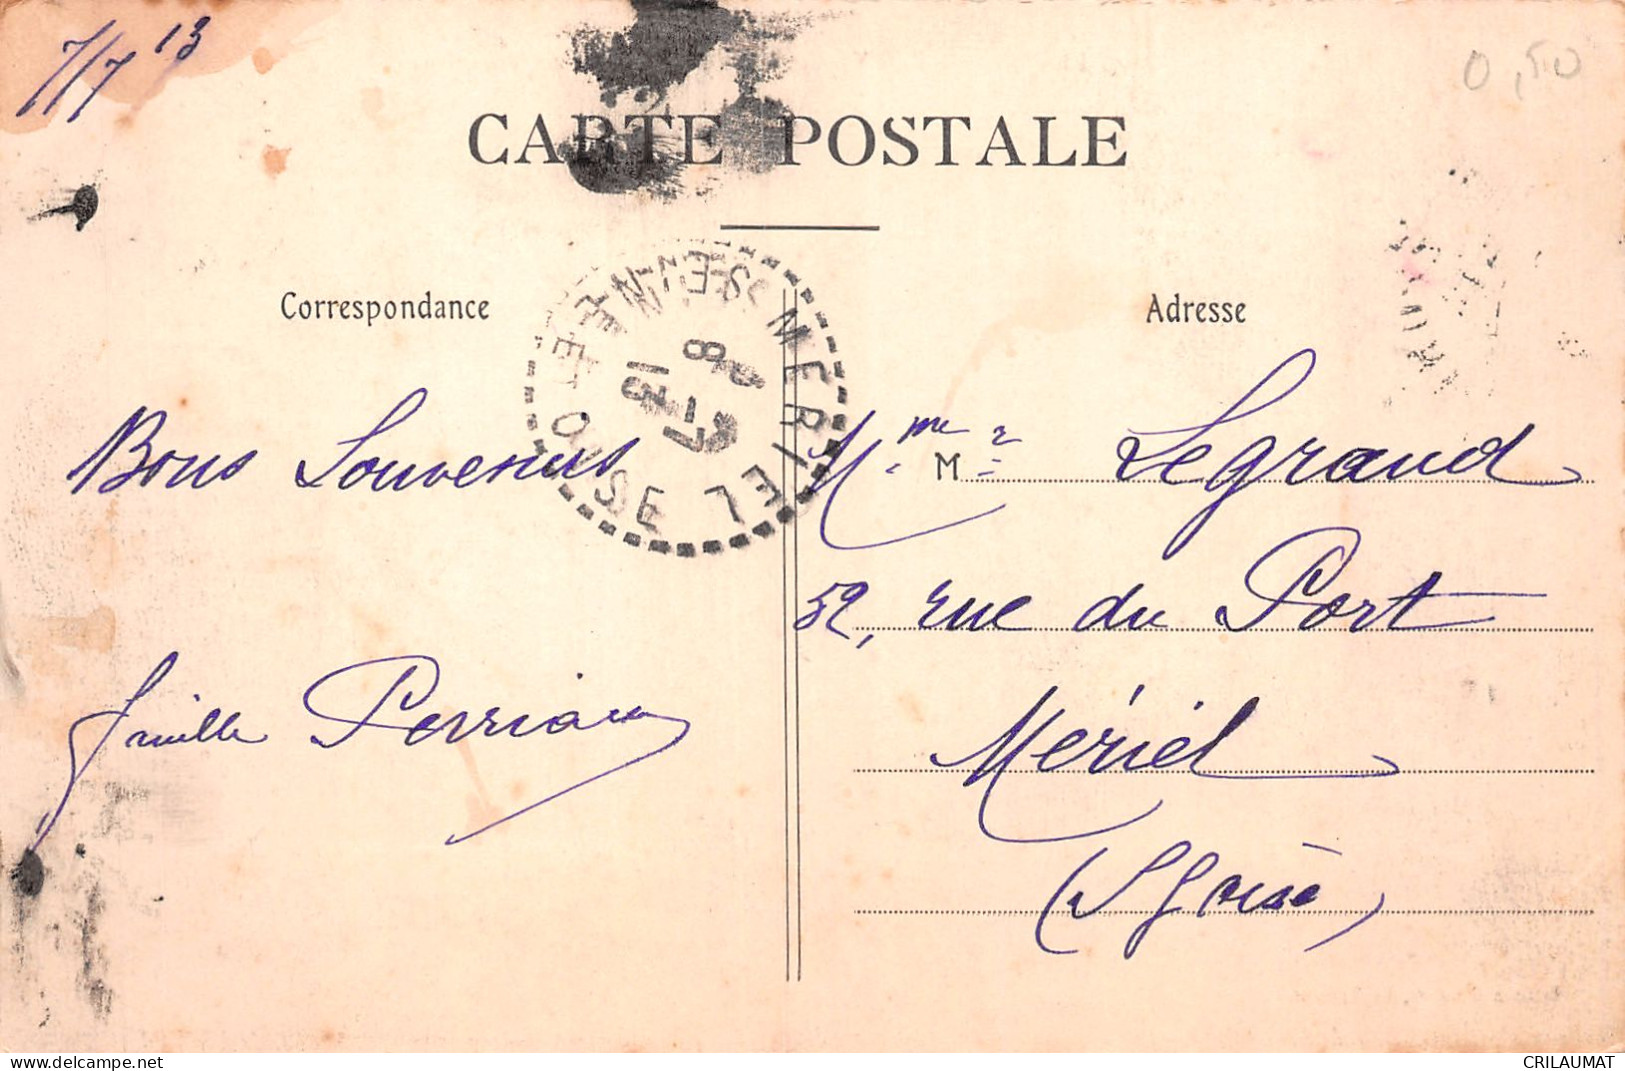 7/7 13
0,50
CARTE POSTALE
Correspondance
Adresse
MERIEL
SEINE ET OISE
8
8-7
13
Bons Souvenirs
famille
M
Mme Legrand
52, rue du Port
Mériel
(S Oise)
www.delcampe.net
CRILAUMAT